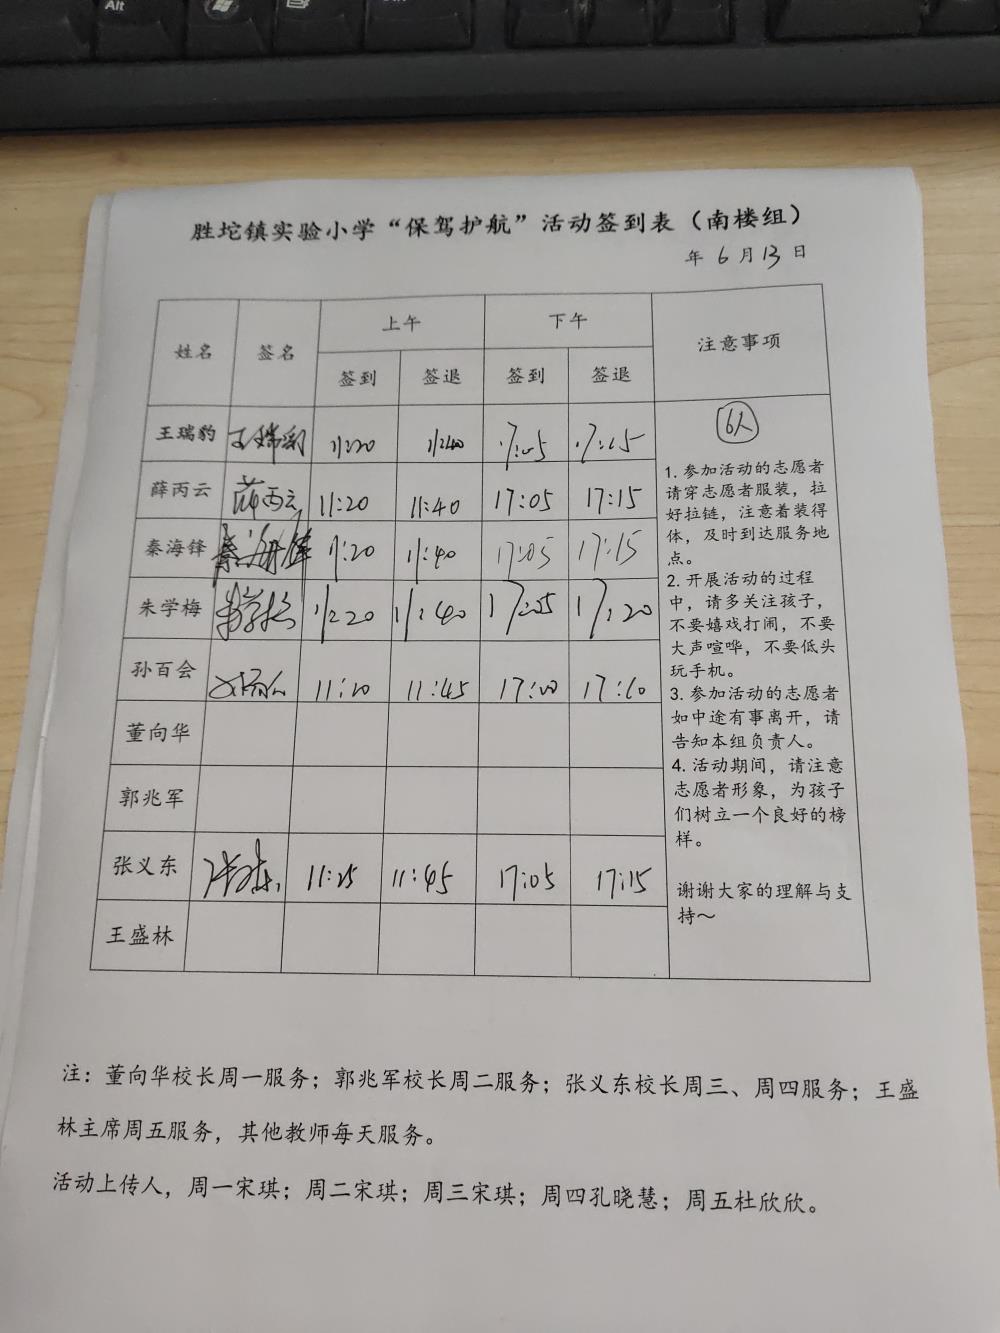 Alt
胜坨镇实验小学“保驾护航”活动签到表（南楼组）
年 6 月 13 日
姓名 签名 上午 下午 注意事项
签到 签退 签到 签退
王瑞豹 王瑞豹 11:20 11:40 17:05 17:15
薛丙云 薛丙云 11:20 11:40 17:05 17:15
秦海锋 秦海锋 11:20 11:40 17:05 17:15
朱学梅 朱学梅 11:20 11:40 17:05 17:20
孙百会 11:20 11:45 17:00 17:10
董向华
郭兆军
张义东 张义东 11:25 11:45 17:05 17:15
王盛林
6人
1. 参加活动的志愿者
请穿志愿者服装，拉
好拉链，注意着装得
体，及时到达服务地
点。
2. 开展活动的过程
中，请多关注孩子，
不要嬉戏打闹，不要
大声喧哗，不要低头
玩手机。
3. 参加活动的志愿者
如中途有事离开，请
告知本组负责人。
4. 活动期间，请注意
志愿者形象，为孩子
们树立一个良好的榜
样。
谢谢大家的理解与支
持～
注：董向华校长周一服务；郭兆军校长周二服务；张义东校长周三、周四服务；王盛
林主席周五服务，其他教师每天服务。
活动上传人，周一宋琪；周二宋琪；周三宋琪；周四孔晓慧；周五杜欣欣。